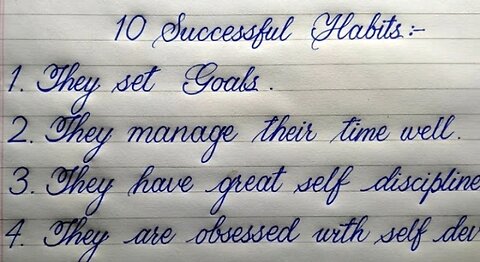 10 Successful Habits:-
1. They set Goals.
2. They manage their time well.
3. They have great self discipline
4. They are obsessed with self dev